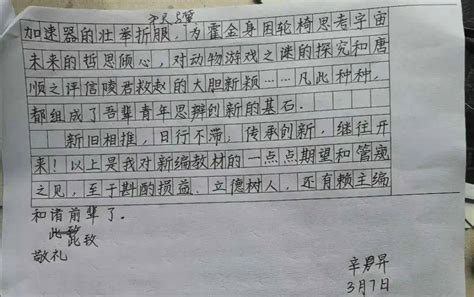 加速器的壮举折服，为霍金身困轮椅思考宇宙
未来的哲思倾心，对动物游戏之谜的探究和唐
顺之评信陵君救赵的大胆新颖……凡此种种，
都组成了吾辈青年思辨创新的基石。
新旧相推，日行不滞；传承创新，继往开
来！以上是我对新编教材的一点点期望和管窥
之见，至于斟酌损益、立德树人，还有赖主编
和诸前辈了。
此致
敬礼
3月7日